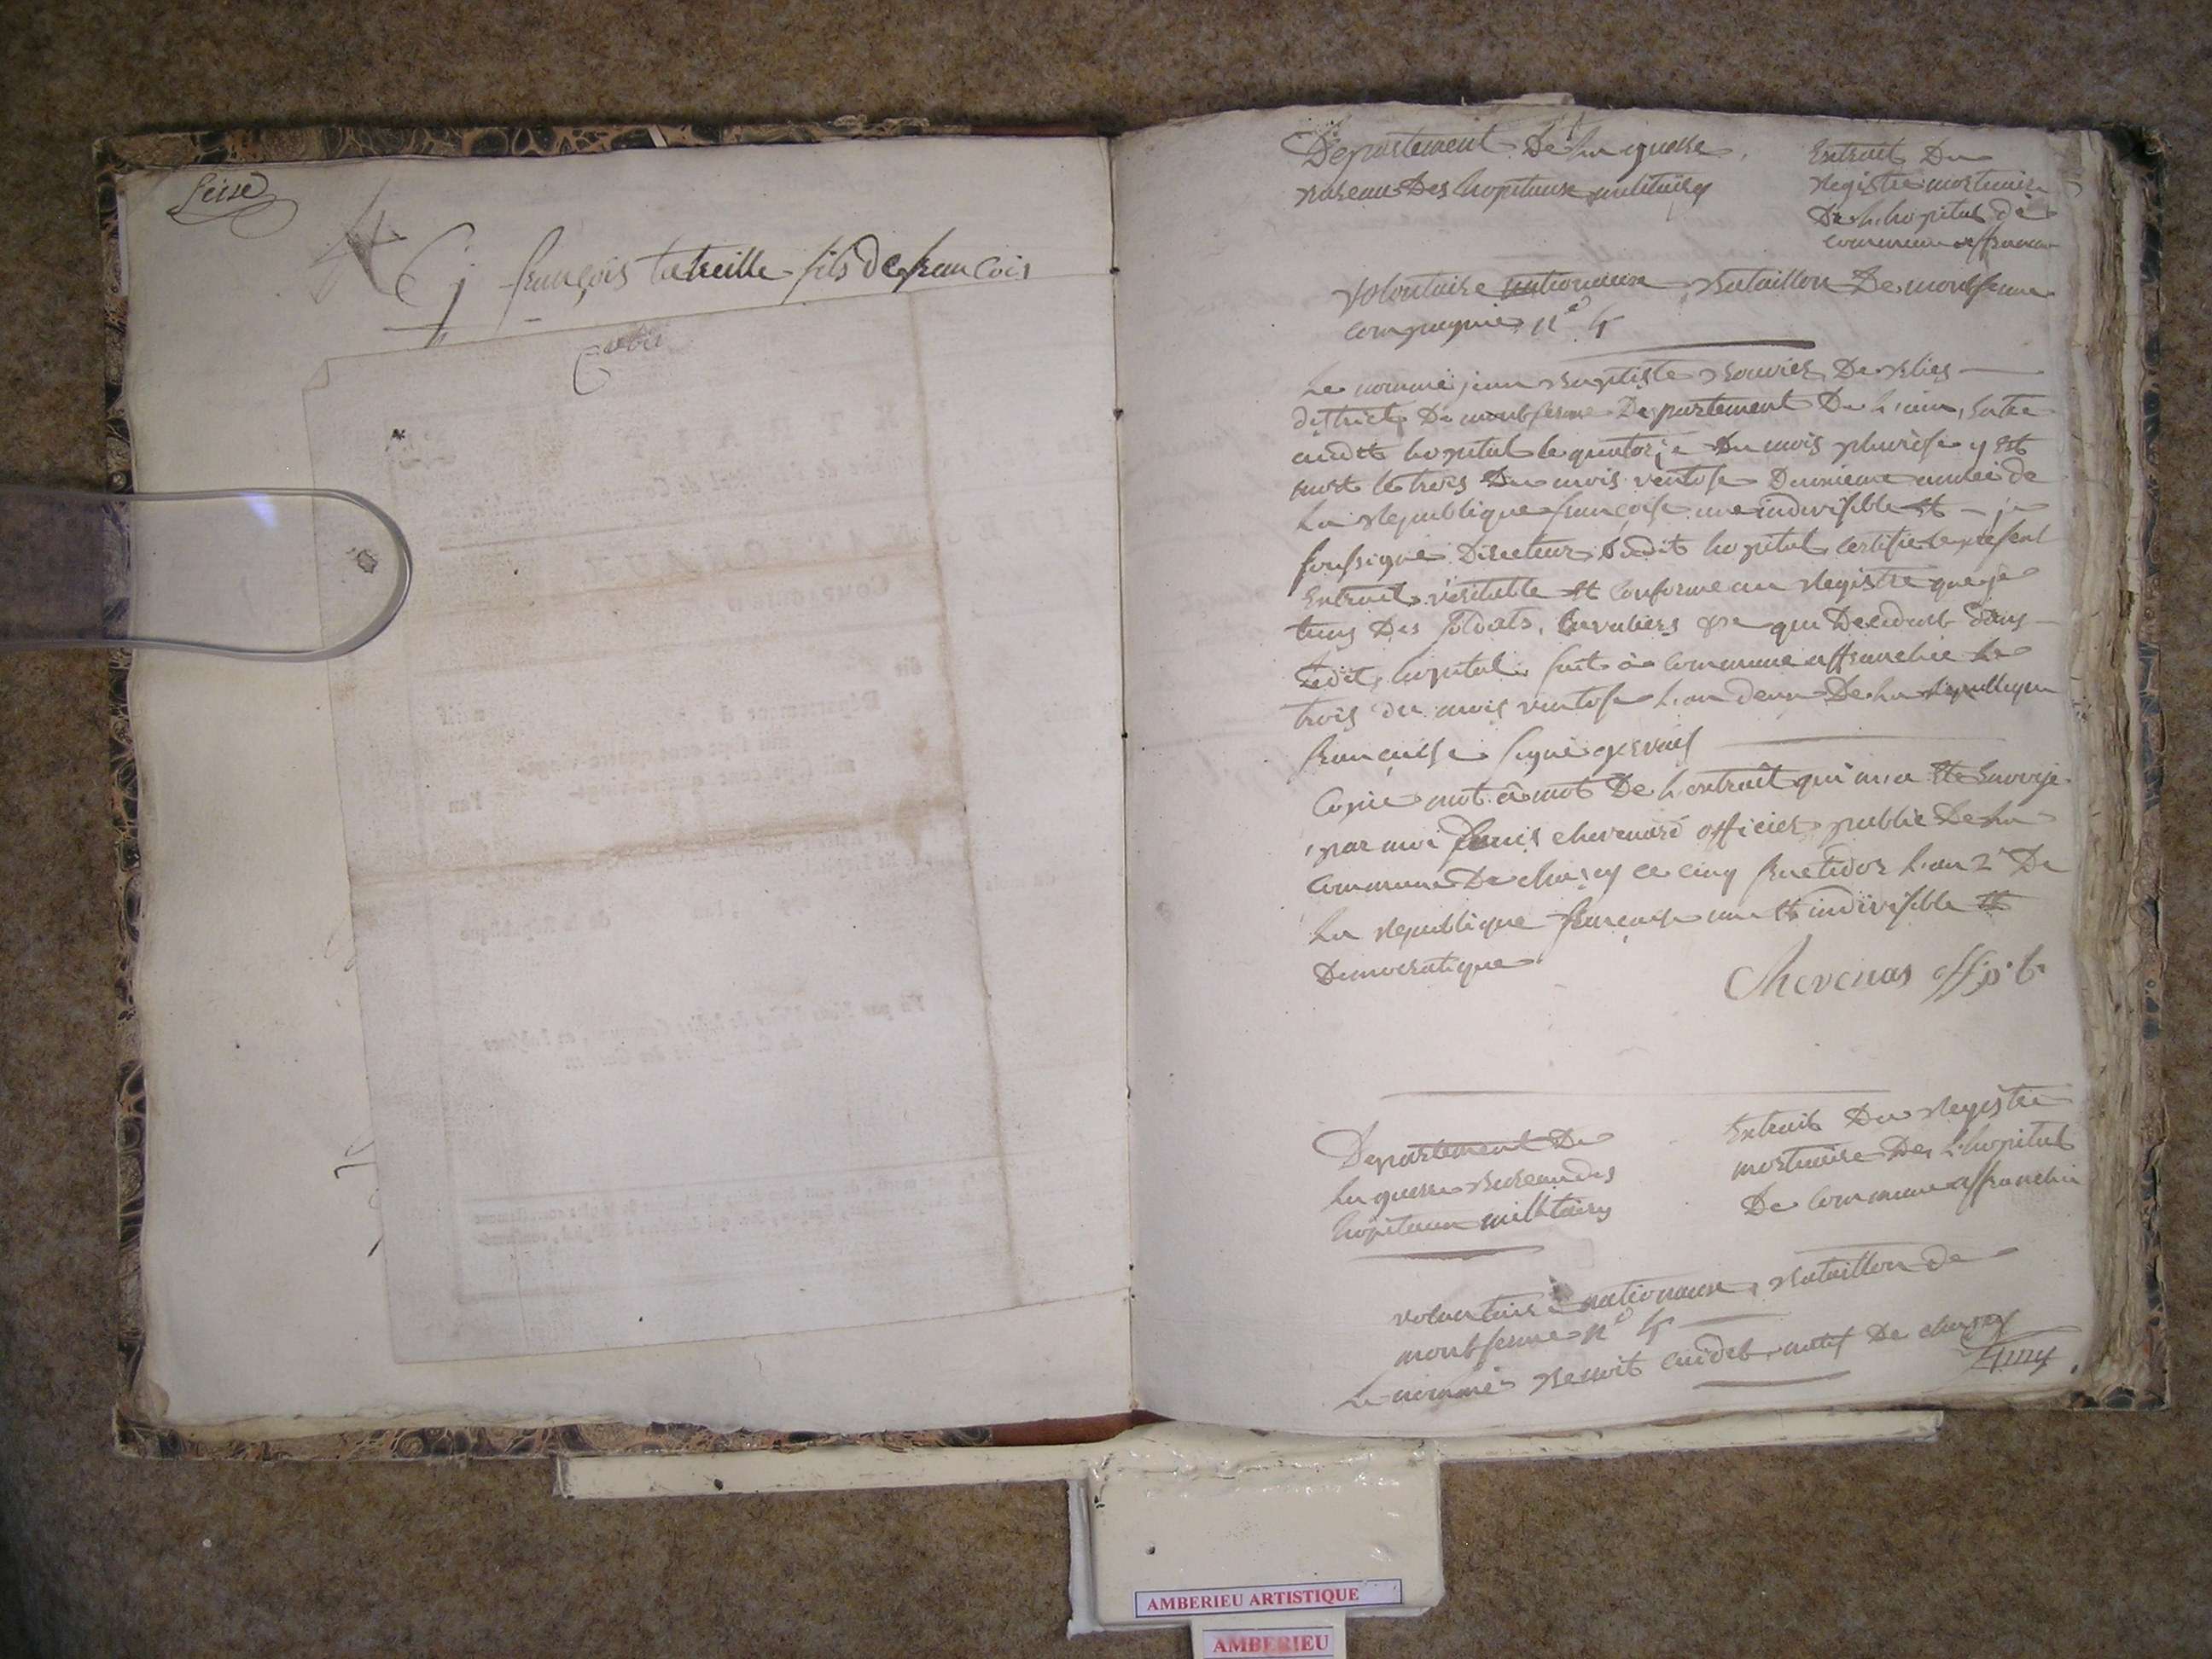 Seise
françois latreille fils de francois
Departement De la guerre
Bureau Des hopitaux militairs
Extrait Du
Registre mortuaire
De L'hopital de
commune affranc
Volontaire nationaux Bataillon De montferme
compagnie n.e 4
Le nommé jean Baptiste Bouvier De Blies
district De montferme Departement De L'ain, Entré
audit hopital le quatorze Du mois pluviose y est
mort le trois Du mois ventose Deuxieme année de
La Republique françoise une indivisible et je
soussigné Directeur dudit hopital certifie le present
Extrait veritable et conforme au Registre que je
tiens Des soldats, Cavaliers &c qui Decedent dans
Ledit hopital fait à Commune affranchie Le
trois du mois ventose L'an deux De La Republique
françaisse signé gervais
Copié mot à mot De L'extrait qui m'a été Envoyé
par moi Denis chevenard officier public De La
Commune De chazey ce cinq fructidor L'an 2e De
La Republique française une et indivisible et
Democratique
Chevenas off p. b.
Departement De
La guerre Bureau des
hopitaux militairs
Extrait Du Registre
mortuaire De L'hopital
De Commune affranchie
volontaire nationaux, Bataillon de
montferme n.e 4
Le nommé Benoit natif De chazey
AMBERIEU ARTISTIQUE
AMBERIEU